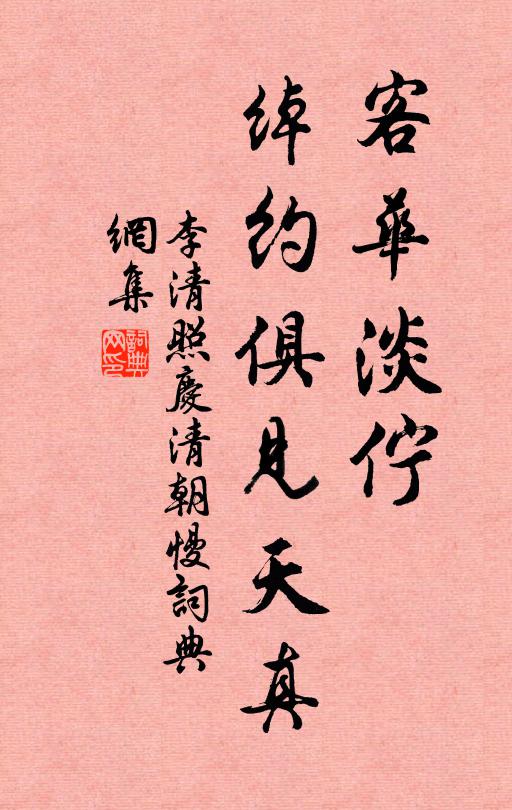 客華淡佇
綽約俱見天真
李清照慶清朝慢詞典
網集
詞典網印